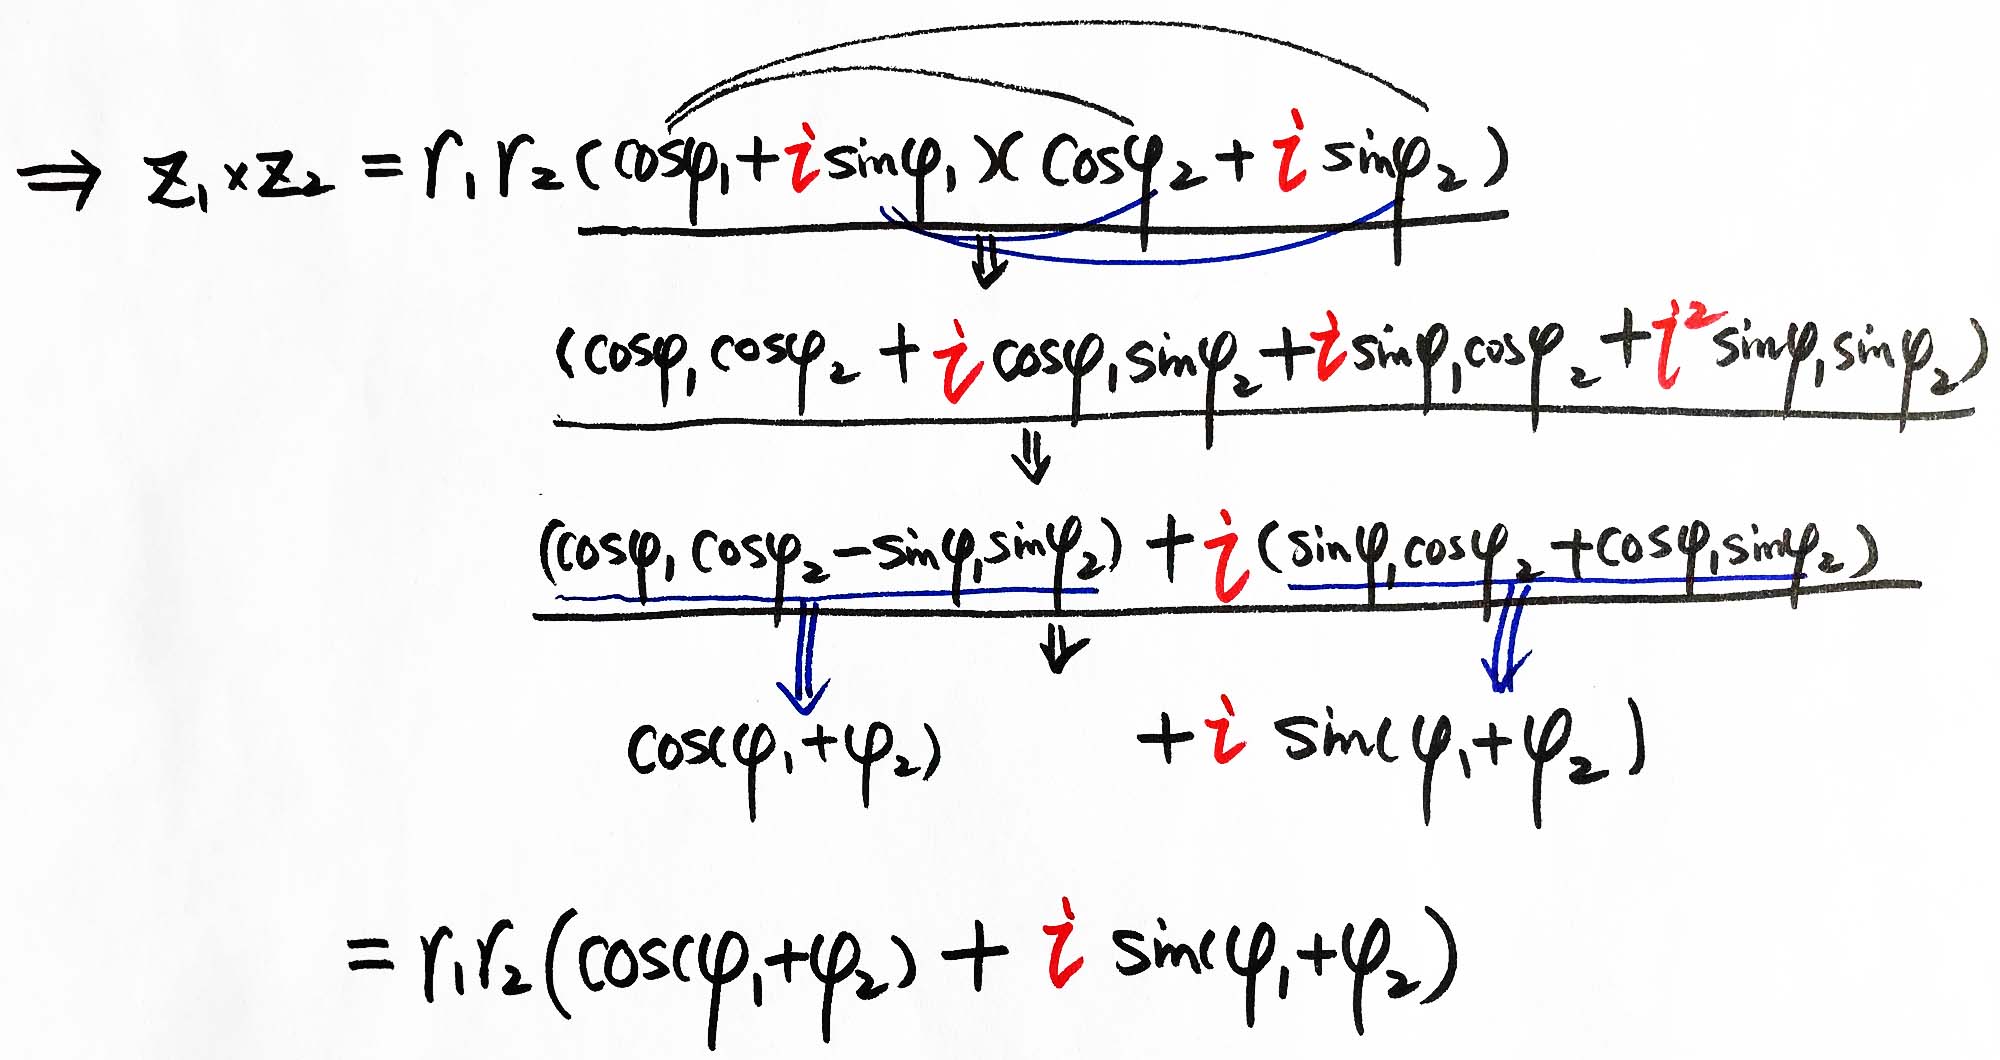 ⇒ z₁ × z₂ = r₁ r₂ (cosφ₁ + i sinφ₁)(cosφ₂ + i sinφ₂)
⇓
(cosφ₁ cosφ₂ + i cosφ₁ sinφ₂ + i sinφ₁ cosφ₂ + i² sinφ₁ sinφ₂)
⇓
(cosφ₁ cosφ₂ − sinφ₁ sinφ₂) + i (sinφ₁ cosφ₂ + cosφ₁ sinφ₂)
⇓ ⇓ ⇓
cos(φ₁+φ₂) + i sin(φ₁+φ₂)
= r₁r₂(cos(φ₁+φ₂) + i sin(φ₁+φ₂)